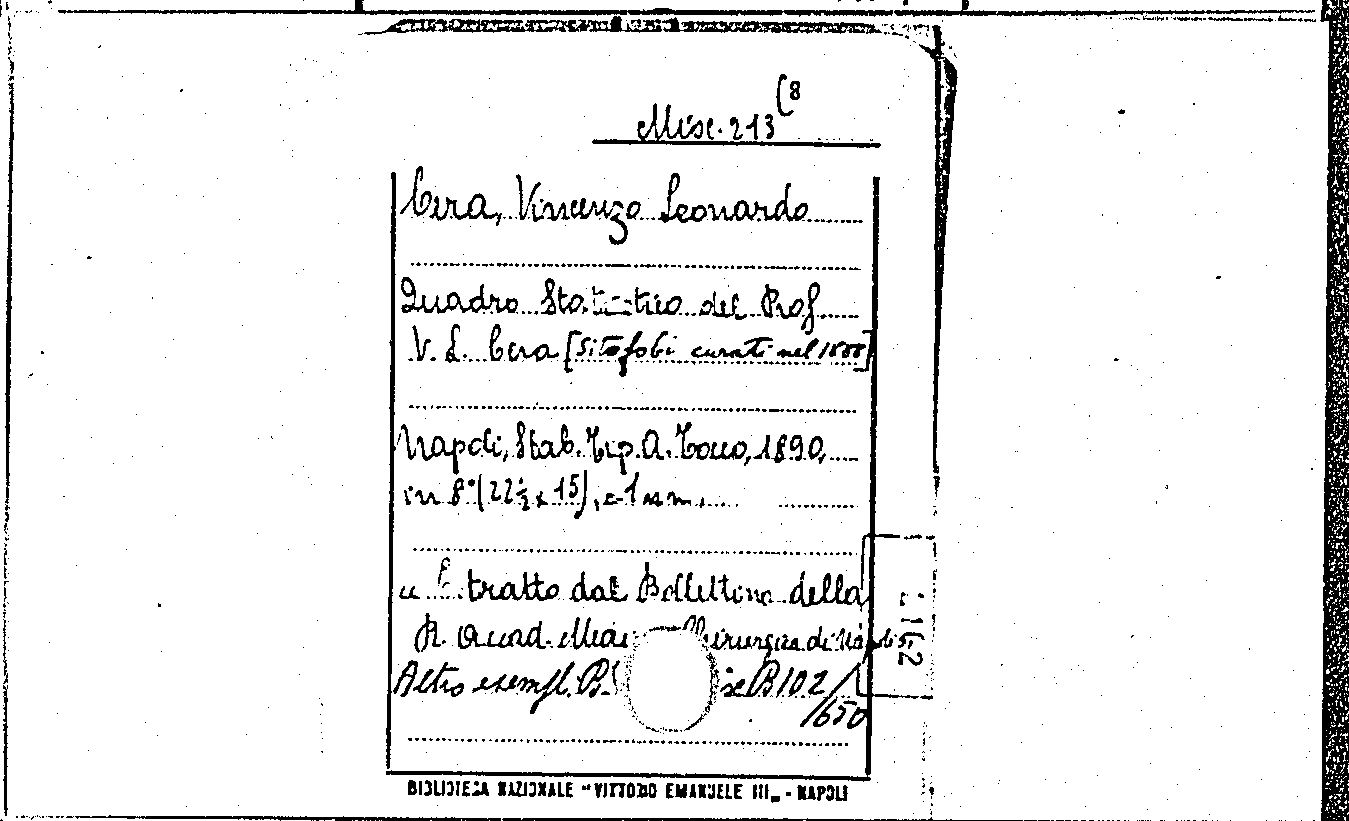 Misc. 213 (8
Cera, Vincenzo Leonardo
Quadro Statistico del Prof.
V. L. Cera [Sitofobi curati nel 1888]
Napoli, Stab. Tip. A. Tocco, 1890,
in 8° (22½ x 15), c. 1 nn.
Estratto dal Bollettino della
R. Accad. Medico Chirurgica di Napoli
Altro esempl. B. Misc B102/
/650
BIBLIOTECA NAZIONALE "VITTORIO EMANUELE III„ - NAPOLI